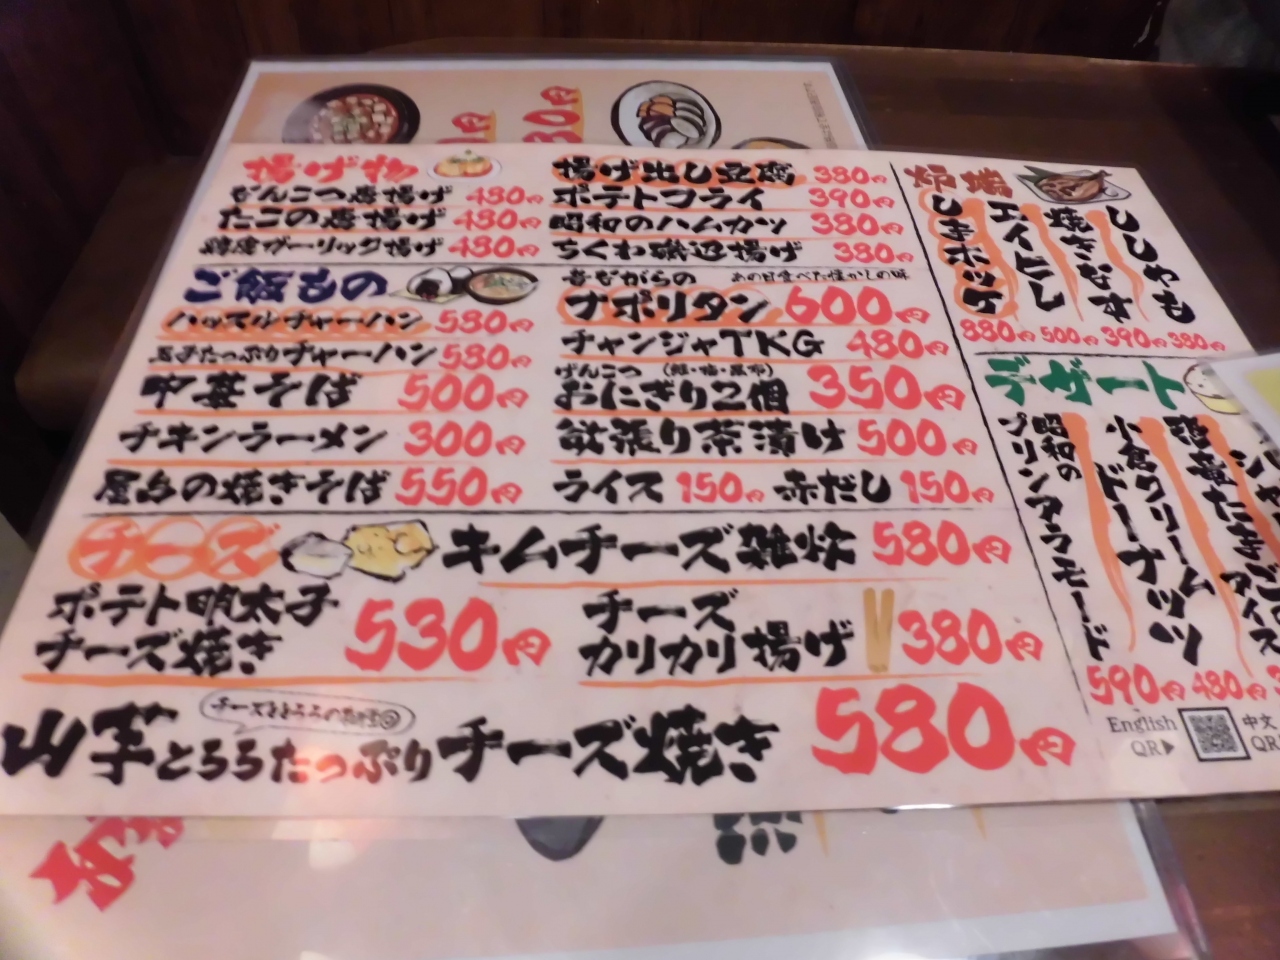 揚げ物
なんこつ唐揚げ 480円
たこの唐揚げ 480円
鶏皮ガーリック揚げ 480円
揚げ出し豆腐 380円
ポテトフライ 390円
昭和のハムカツ 380円
ちくわ磯辺揚げ 380円
ご飯もの
ハッスルチャーハン 580円
玉子たっぷりチャーハン 580円
中華そば 500円
チキンラーメン 300円
屋台の焼きそば 550円
昔ながらの あの日食べた懐かしの味
ナポリタン 600円
チャンジャTKG 480円
げんこつ (鮭・梅・昆布)
おにぎり2個 350円
敏張り茶漬け 500円
ライス 150円 赤だし 150円
チーズ
キムチーズ雑炊 580円
ポテト明太子
チーズ焼き 530円
チーズ
カリカリ揚げ 380円
山芋とろろたっぷりチーズ焼き 580円
ししゃも
380円
焼きなす
390円
エイヒレ
500円
しまホッケ
880円
デザート
小倉クリーム
ドーナッツ
480円
昭和の
プリンアラモード
590円
English
QR▶
中文
QR